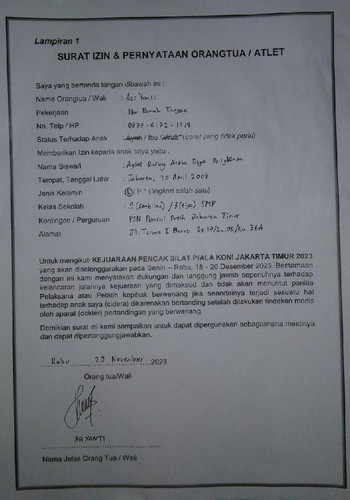 Lampiran 1
SURAT IZIN & PERNYATAAN ORANGTUA / ATLET
Saya yang bertanda tangan dibawah ini :
Nama Orangtua / Wali :
Pekerjaan : Ibu Rumah Tangga
No. Telp / HP :
Status Terhadap Anak : Ayah / Ibu / (coret yang tidak perlu)
Memberikan Izin kepada anak saya yaitu :
Nama Siswa/i :
Tempat, Tanggal Lahir : Jakarta, 20 April
Jenis Kelamin : L P * (lingkari salah satu)
Kelas Sekolah : 9 (Sembilan) / 3 (tiga) SMP
Kontingen / Perguruan : Putih Jakarta Timur
Alamat : Jl. I No. 36A
Untuk mengikuti KEJUARAAN PENCAK SILAT PIALA KONI JAKARTA TIMUR 2023
yang akan diselenggarakan pada Senin – Rabu, 18 - 20 Desember 2023. Bersamaan
dengan ini kami menyatakan dukungan dan tanggung jawab sepenuhnya terhadap
kelancaran jalannya kejuaraan yang dimaksud dan tidak akan menuntut panitia
Pelaksana atau Pelatih kepihak berwenang jika seandainya terjadi sesuatu hal
terhadap anak saya (cidera) dikarenakan bertanding setelah dilakukan tindakan medis
oleh aparat (dokter) pertandingan yang berwenang.
Demikian surat ini kami sampaikan untuk dapat dipergunakan sebagaimana mestinya
dan dapat dipertanggungjawabkan.
Rabu 29 November 2023
Orang tua/Wali
Nama Jelas Orang Tua / Wali